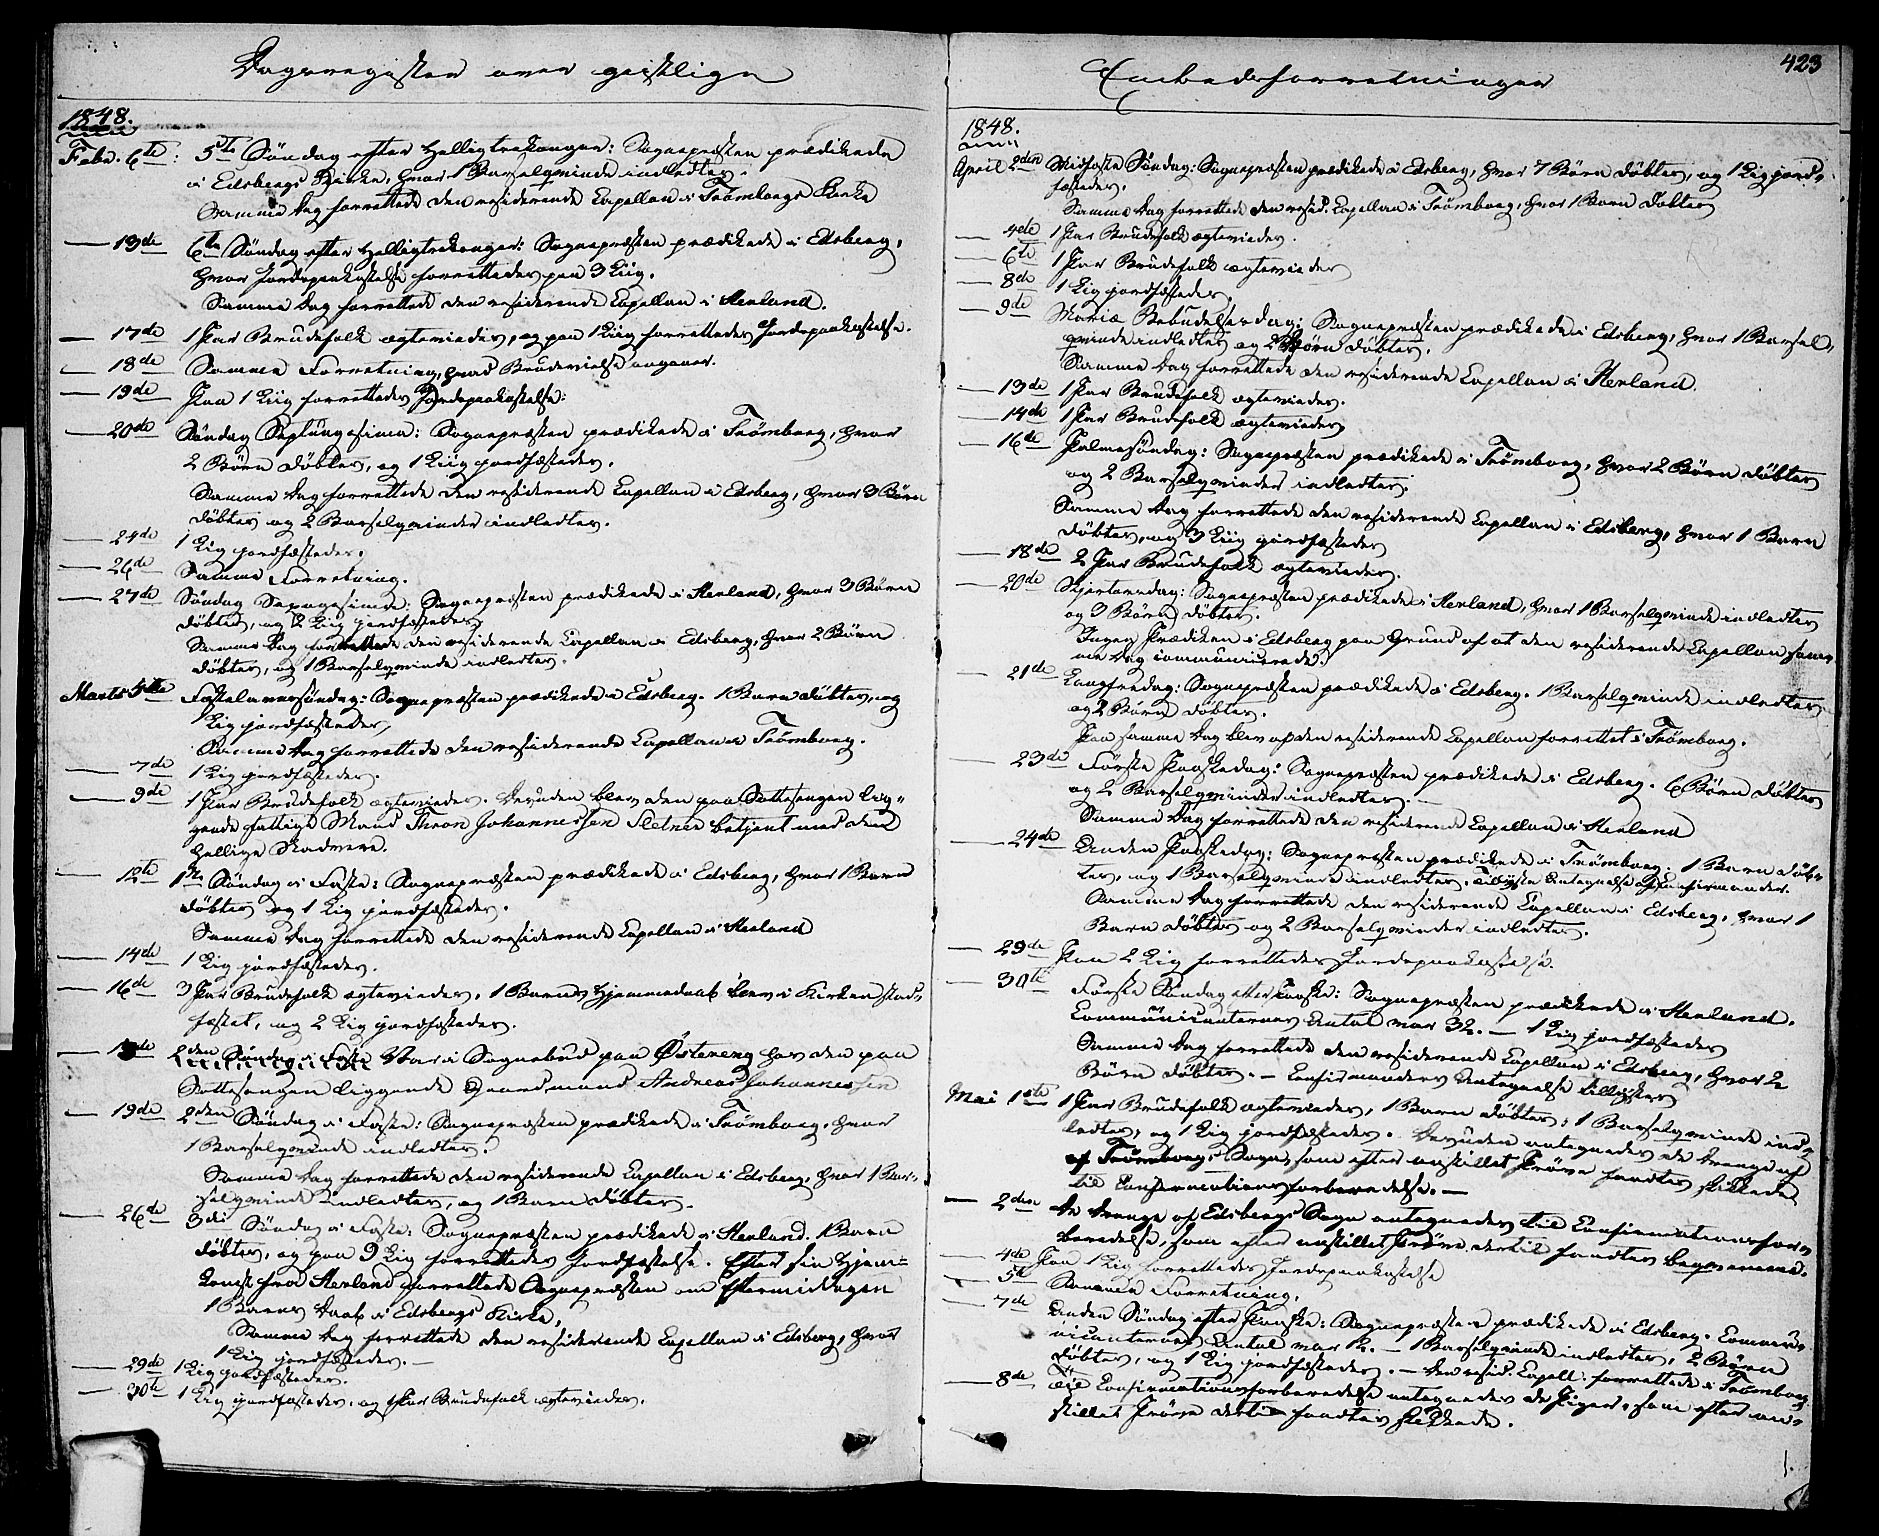 Dagsregister over geistlige
1848.
Febr. 6te: 5te Søndag efter Helligtrekonger: Sognepræsten prædikede
i Edsbergs Kirke, hvor 1 Barselqvinde indledtes.
Samme Dag forrettede den residerende Capellan i Trømborgs Kirke
— 13de 6te Søndag efter Helligtrekonger: Sognepræsten prædikede i Edsberg,
hvor Jordspaakastelse forrettedes paa 3 Liig.
Samme Dag forrettede den residerende Capellan i Herland.
— 17de 1 Par Brudefolk ægteviedes, og paa 1 Liig forrettedes Jordspaakastelse.
— 18de Samme Forretning, hvad Brudevielse angaaer.
— 19de Paa 1 Liig forrettedes Jordspaakastelse.
— 20de Søndag Septuagesima: Sognepræsten prædikede i Trømborg, hvor
2 Børn døbtes, og 1 Liig jordfæstedes.
Samme Dag forrettede den residerende Capellan i Edsberg, hvor 3 Børn
døbtes og 2 Barselqvinder indledtes.
— 24de 1 Lig jordfæstedes.
— 26de Samme Forretning.
— 27de Søndag Sexagesima: Sognepræsten prædikede i Herland, hvor 3 Børn
døbtes, og 2 Lig jordfæstedes
Samme Dag forrettede den residerende Capellan i Edsberg, hvor 2 Børn
døbtes, og 1 Barselqvinde indledtes.
Marts 5te Fastelavnssøndag: Sognepræsten prædikede i Edsberg. 1 Barn døbtes, og
1 Lig jordfæstedes,
Samme Dag forrettede den residerende Capellan i Trømborg.
— 7de 1 Lig jordfæstedes.
— 9de 1 Par Brudefolk ægteviedes. Desuden blev den paa Sottesengen lig-
gende fattige Mand Thron Johannessen Sletner betjent med den
hellige Nadvere.
— 12te 1ste Søndag i Faste: Sognepræsten prædikede i Edsberg, hvor 1 Barn
døbtes og 1 Lig jordfæstedes.
Samme Dag forrettede den residerende Capellan i Herland
— 14de 1 Lig jordfæstedes.
— 16de 3 Par Brudefolk ægteviedes, 1 Barns Hjemmedaab blev i Kirken stad-
fæstet, og 2 Lig jordfæstedes.
2den Søndag i Faste Var i Sognebud paa Østereng hos den paa
Sottesengen liggende Gaardmand Andreas Johannessen
— 19de 2den Søndag i Faste: Sognepræsten prædikede i Trømborg, hvor
1 Barselqvinde indledtes.
Samme Dag forrettede den residerende Capellan i Edsberg, hvor 1 Bar-
selqvinde indledtes, og 1 Barn døbtes.
— 26de 3die Søndag i Faste: Sognepræsten prædikede i Herland. 1 Barn
døbtes, og paa 9 Lig forrettedes Jordfæstelse. Efter sin Hjem-
komst fra Herland forrettede Sognepræsten om Eftermiddagen
1 Barns Daab i Edsbergs Kirke,
Samme Dag forrettede den residerende Capellan i Edsberg, hvor
1 Lig jordfæstedes. —
— 29de 1 Lig jordfæstedes.
— 30te 1 Lig jordfæstedes, og 1 Par Brudefolk ægteviedes.
Embedsforretninger
423
1848.
April 2den Midfaste Søndag: Sognepræsten prædikede i Edsberg, hvor 7 Børn døbtes, og 1 Lig jord-
fæstedes.
Samme Dag forrettede den resid. Capellan i Trømborg, hvor 1 Barn døbtes
— 4de 1 Par Brudefolk ægteviedes.
— 6te 1 Par Brudefolk ægteviedes
— 8de 1 Lig jordfæstedes.
— 9de Mariæ Bebudelsesdag: Sognepræsten prædikede i Edsberg, hvor 1 Barsel-
qvinde indledtes og 2 Børn døbtes.
Samme Dag forrettede den residerende Capellan i Herland.
— 13de 1 Par Brudefolk ægteviedes.
— 14de 1 Par Brudefolk ægteviedes
— 16de Palmesøndag: Sognepræsten prædikede i Trømborg, hvor 2 Børn døbtes
og 2 Barselqvinder indledtes.
Samme Dag forrettede den residerende Capellan i Edsberg, hvor 1 Barn
døbtes, og 3 Liig jordfæstedes
— 18de 2 Par Brudefolk ægteviedes.
— 20de Skjertorsdag: Sognepræsten prædikede i Herland, hvor 1 Barselqvinde indledtes
og 3 Børn døbtes.
Ingen Prædiken i Edsberg paa Grund af at den residerende Capellan sam-
me Dag communicerede.
— 21de Langfredag: Sognepræsten prædikede i Edsberg. 1 Barselqvinde indledtes
og 2 Børn døbtes.
Paa samme Dag blev af den residerende Capellan forrettet i Trømborg.
— 23de Første Paaskedag: Sognepræsten prædikede i Edsberg. 6 Børn døbtes
og 2 Barselqvinder indledtes. —
Samme Dag forrettede den residerende Capellan i Herland
— 24de Anden Paaskedag: Sognepræsten prædikede i Trømborg. 1 Barn døb-
tes, og 1 Barselqvinde indledtes. Tillyste Antegnelse af Confirmander.
Samme Dag forrettede den residerende Capellan i Edsberg, hvor 1
Barn døbtes og 2 Barselqvinder indledtes.
— 29de Paa 2 Lig forrettedes Jordspaakastelse.
— 30te Første Søndag efter Paaske: Sognepræsten prædikede i Herland.
Communicanternes Antal var 32. — 1 Lig jordfæstedes
Samme Dag forrettede den residerende Capellan i Edsberg, hvor 2
Børn døbtes. — Confirmanders Antegnelse tillystes
Mai 1ste 1 Par Brudefolk ægteviedes, 1 Barn døbtes, 1 Barselqvinde ind-
ledtes, og 1 Lig jordfæstedes. Desuden antegnedes de Drenge af
af Trømborgs Sogn, som efter anstillet Prøve fandtes skikkede
til Confirmationsforberedelse. —
— 2den De Drenge af Edsbergs Sogn antegnedes til Confirmationsfor-
beredelse, som efter anstillet Prøve dertil fandtes beqvemme.
— 4de Paa 1 Lig forrettedes Jordspaakastelse
— 5te Samme Forretning.
— 7de Anden Søndag efter Paaske: Sognepræsten prædikede i Edsberg. Commu-
nicanternes Antal var 12. — 1 Barselqvinde indledtes, 2 Børn
døbtes, og 1 Lig jordfæstedes. — Den resid. Capell. forrettede i Trømborg
— 8de Til Confirmationsforberedelse antegnedes de Piger, som efter an-
stillet Prøve dertil fandtes skikkede.